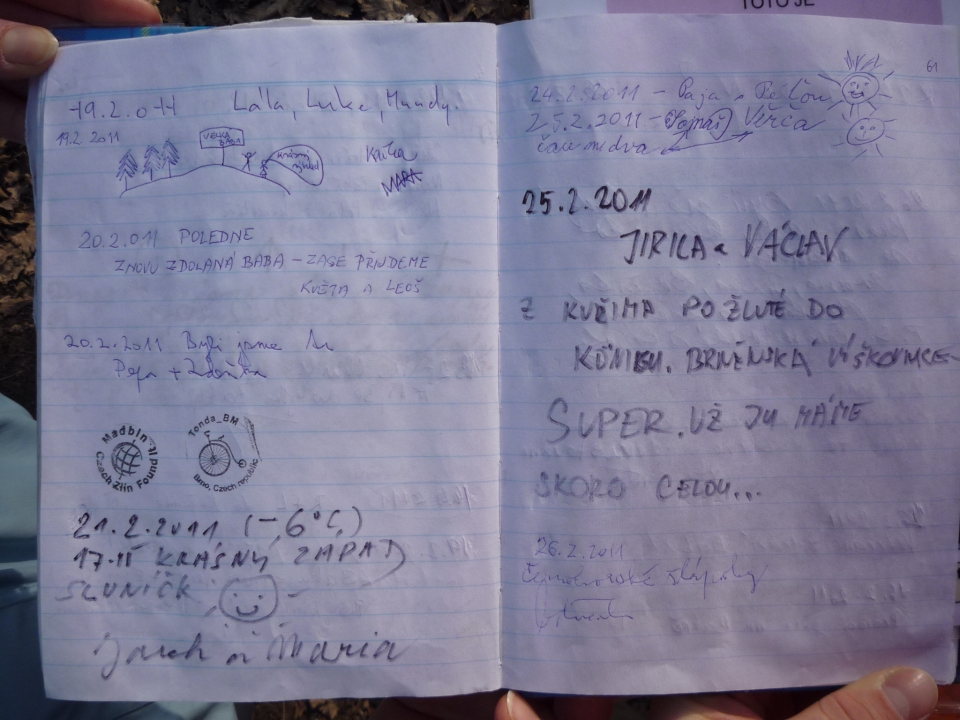 TOTO JE
19.2.011 Lála, Luke, Mandy.
19.2.2011
VELKÁ BABA
krásný výhled
Kačka
MARA
20.2.011 POLEDNE
ZNOVU ZDOLANÁ BABA – ZASE PŘIJDEME
KVĚTA A LEOŠ
20.2.2011 Byli jsme tu
Pepa + Zdeňka
Madbin
Czech Zlin Found
Tonda_BM
Brno, Czech republic
21.2.2011, (-6°C,)
17.15 KRÁSNÝ ZÁPAD
SLUNÍČK
Maria
61
24.2.2011 –
25.2.2011 – Tojnáš Věrča
dva
25.2.2011
JIRICA a VÁCLAV
Z KUŘIMA PO ŽLUTÉ DO
KŮNICH. BRNĚNSKÁ VÝŠKOVNICE –
SUPER. UŽ JU MÁME
SKORO CELOU...
26.2.2011